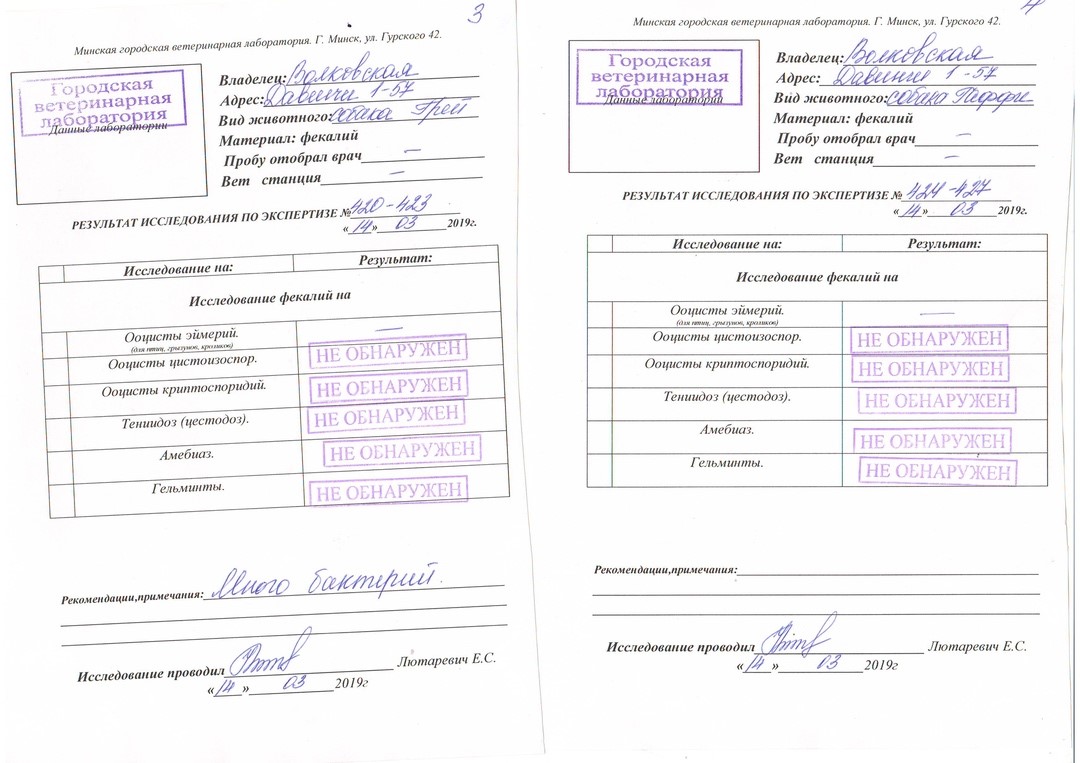 3
Минская городская ветеринарная лаборатория. Г. Минск, ул. Гурского 42.
Городская
ветеринарная
лаборатория
Данные лаборатории
Владелец: Волковская
Адрес: Давинчи 1-57
Вид животного: собака Грей
Материал: фекалий
Пробу отобрал врач —
Вет станция —
РЕЗУЛЬТАТ ИССЛЕДОВАНИЯ ПО ЭКСПЕРТИЗЕ № 420-423
«14» 03 2019г.
Исследование на: Результат:
Исследование фекалий на
Ооцисты эймерий. —
(для птиц, грызунов, кроликов)
Ооцисты цистоизоспор. НЕ ОБНАРУЖЕН
Ооцисты криптоспоридий. НЕ ОБНАРУЖЕН
Тениидоз (цестодоз). НЕ ОБНАРУЖЕН
Амебиаз. НЕ ОБНАРУЖЕН
Гельминты. НЕ ОБНАРУЖЕН
Рекомендации,примечания: Много бактерий.
Исследование проводил Лютаревич Е.С.
«14» 03 2019г
4
Минская городская ветеринарная лаборатория. Г. Минск, ул. Гурского 42.
Городская
ветеринарная
лаборатория
Данные лаборатории
Владелец: Волковская
Адрес: Давинчи 1-57
Вид животного: собака Пеффи
Материал: фекалий
Пробу отобрал врач —
Вет станция —
РЕЗУЛЬТАТ ИССЛЕДОВАНИЯ ПО ЭКСПЕРТИЗЕ № 424-427
«14» 03 2019г.
Исследование на: Результат:
Исследование фекалий на
Ооцисты эймерий. —
(для птиц, грызунов, кроликов)
Ооцисты цистоизоспор. НЕ ОБНАРУЖЕН
Ооцисты криптоспоридий. НЕ ОБНАРУЖЕН
Тениидоз (цестодоз). НЕ ОБНАРУЖЕН
Амебиаз. НЕ ОБНАРУЖЕН
Гельминты. НЕ ОБНАРУЖЕН
Рекомендации,примечания:
Исследование проводил Лютаревич Е.С.
«14» 03 2019г